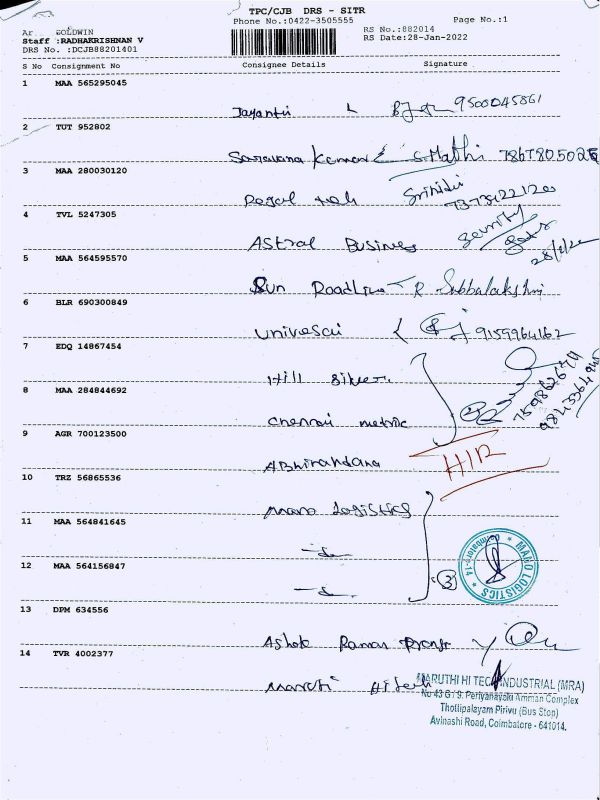 TPC/CJB DRS - SITR
Phone No.:0422-3505555
Page No.:1
Ar GOLDWIN
RS No.:882014
Staff :RADHAKRISHNAN V
RS Date:28-Jan-2022
DRS No. :DCJB88201401
S No Consignment No Consignee Details Signature
1 MAA 565295045
Jayanti 9500045861
2 TUT 952802
Saravana Kumar S. Mathi 7867805025
3 MAA 280030120
Regal Srinidi
7373422120
4 TVL 5247305
Astral Business Security
Gate
28/1/22
5 MAA 564595570
Sun Roadline R Subbalakshmi
6 BLR 690300849
Univesal 9159964162
7 EDQ 14867454
Hill Silver
8 MAA 284844692
Chennai metric
9 AGR 700123500
Abhinandana
10 TRZ 56865536
Mano Logistics
11 MAA 564841645
12 MAA 564156847
3
* MANO LOGISTICS *
Coimbatore-14
13 DPM 634556
Ashok Raman
14 TVR 4002377
Maruti Hi Tech
MARUTHI HI TECH INDUSTRIAL (MRA)
No 43 G / 9, Periyanayaki Amman Complex
Thottipalayam Pirivu (Bus Stop)
Avinashi Road, Coimbatore - 641014.